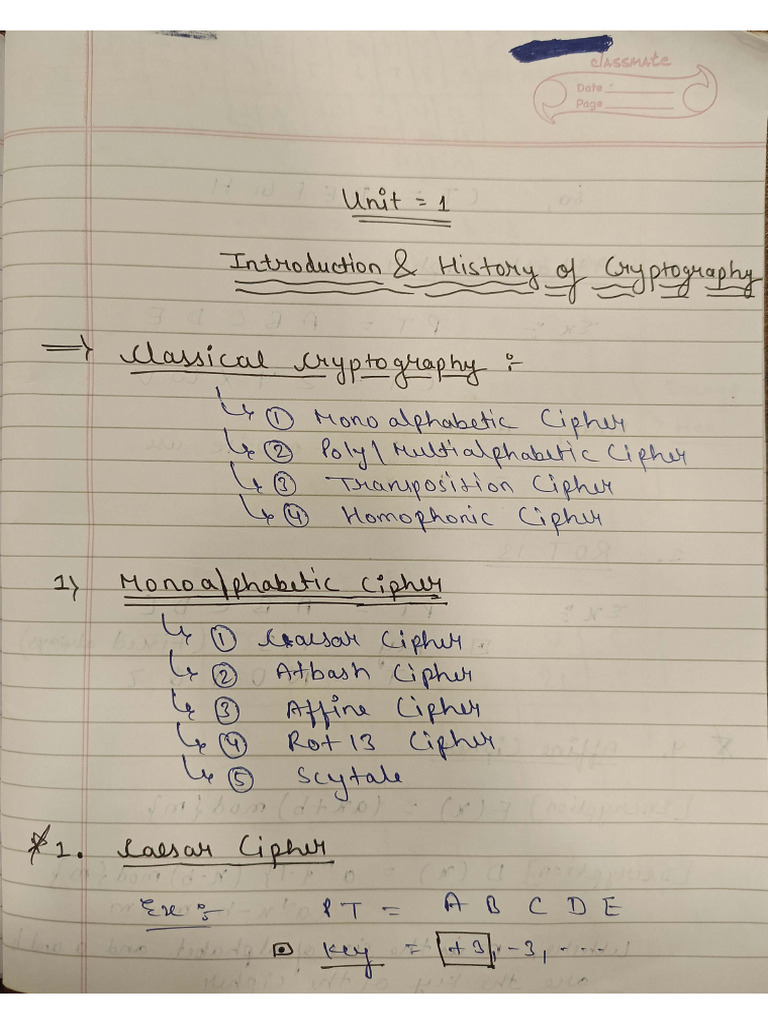 classmate
Date
Page
Unit = 1
Introduction & History of Cryptography
⇒ Classical Cryptography :-
↳ ① Monoalphabetic Cipher
↳ ② Poly/Multialphabetic Cipher
↳ ③ Transposition Cipher
↳ ④ Homophonic Cipher
1) Monoalphabetic Cipher
↳ ① Caesar Cipher
↳ ② Atbash Cipher
↳ ③ Affine Cipher
↳ ④ Rot 13 Cipher
↳ ⑤ Scytale
* 1. Caesar Cipher
Ex :- PT = A B C D E
Key = +3, -3, ....